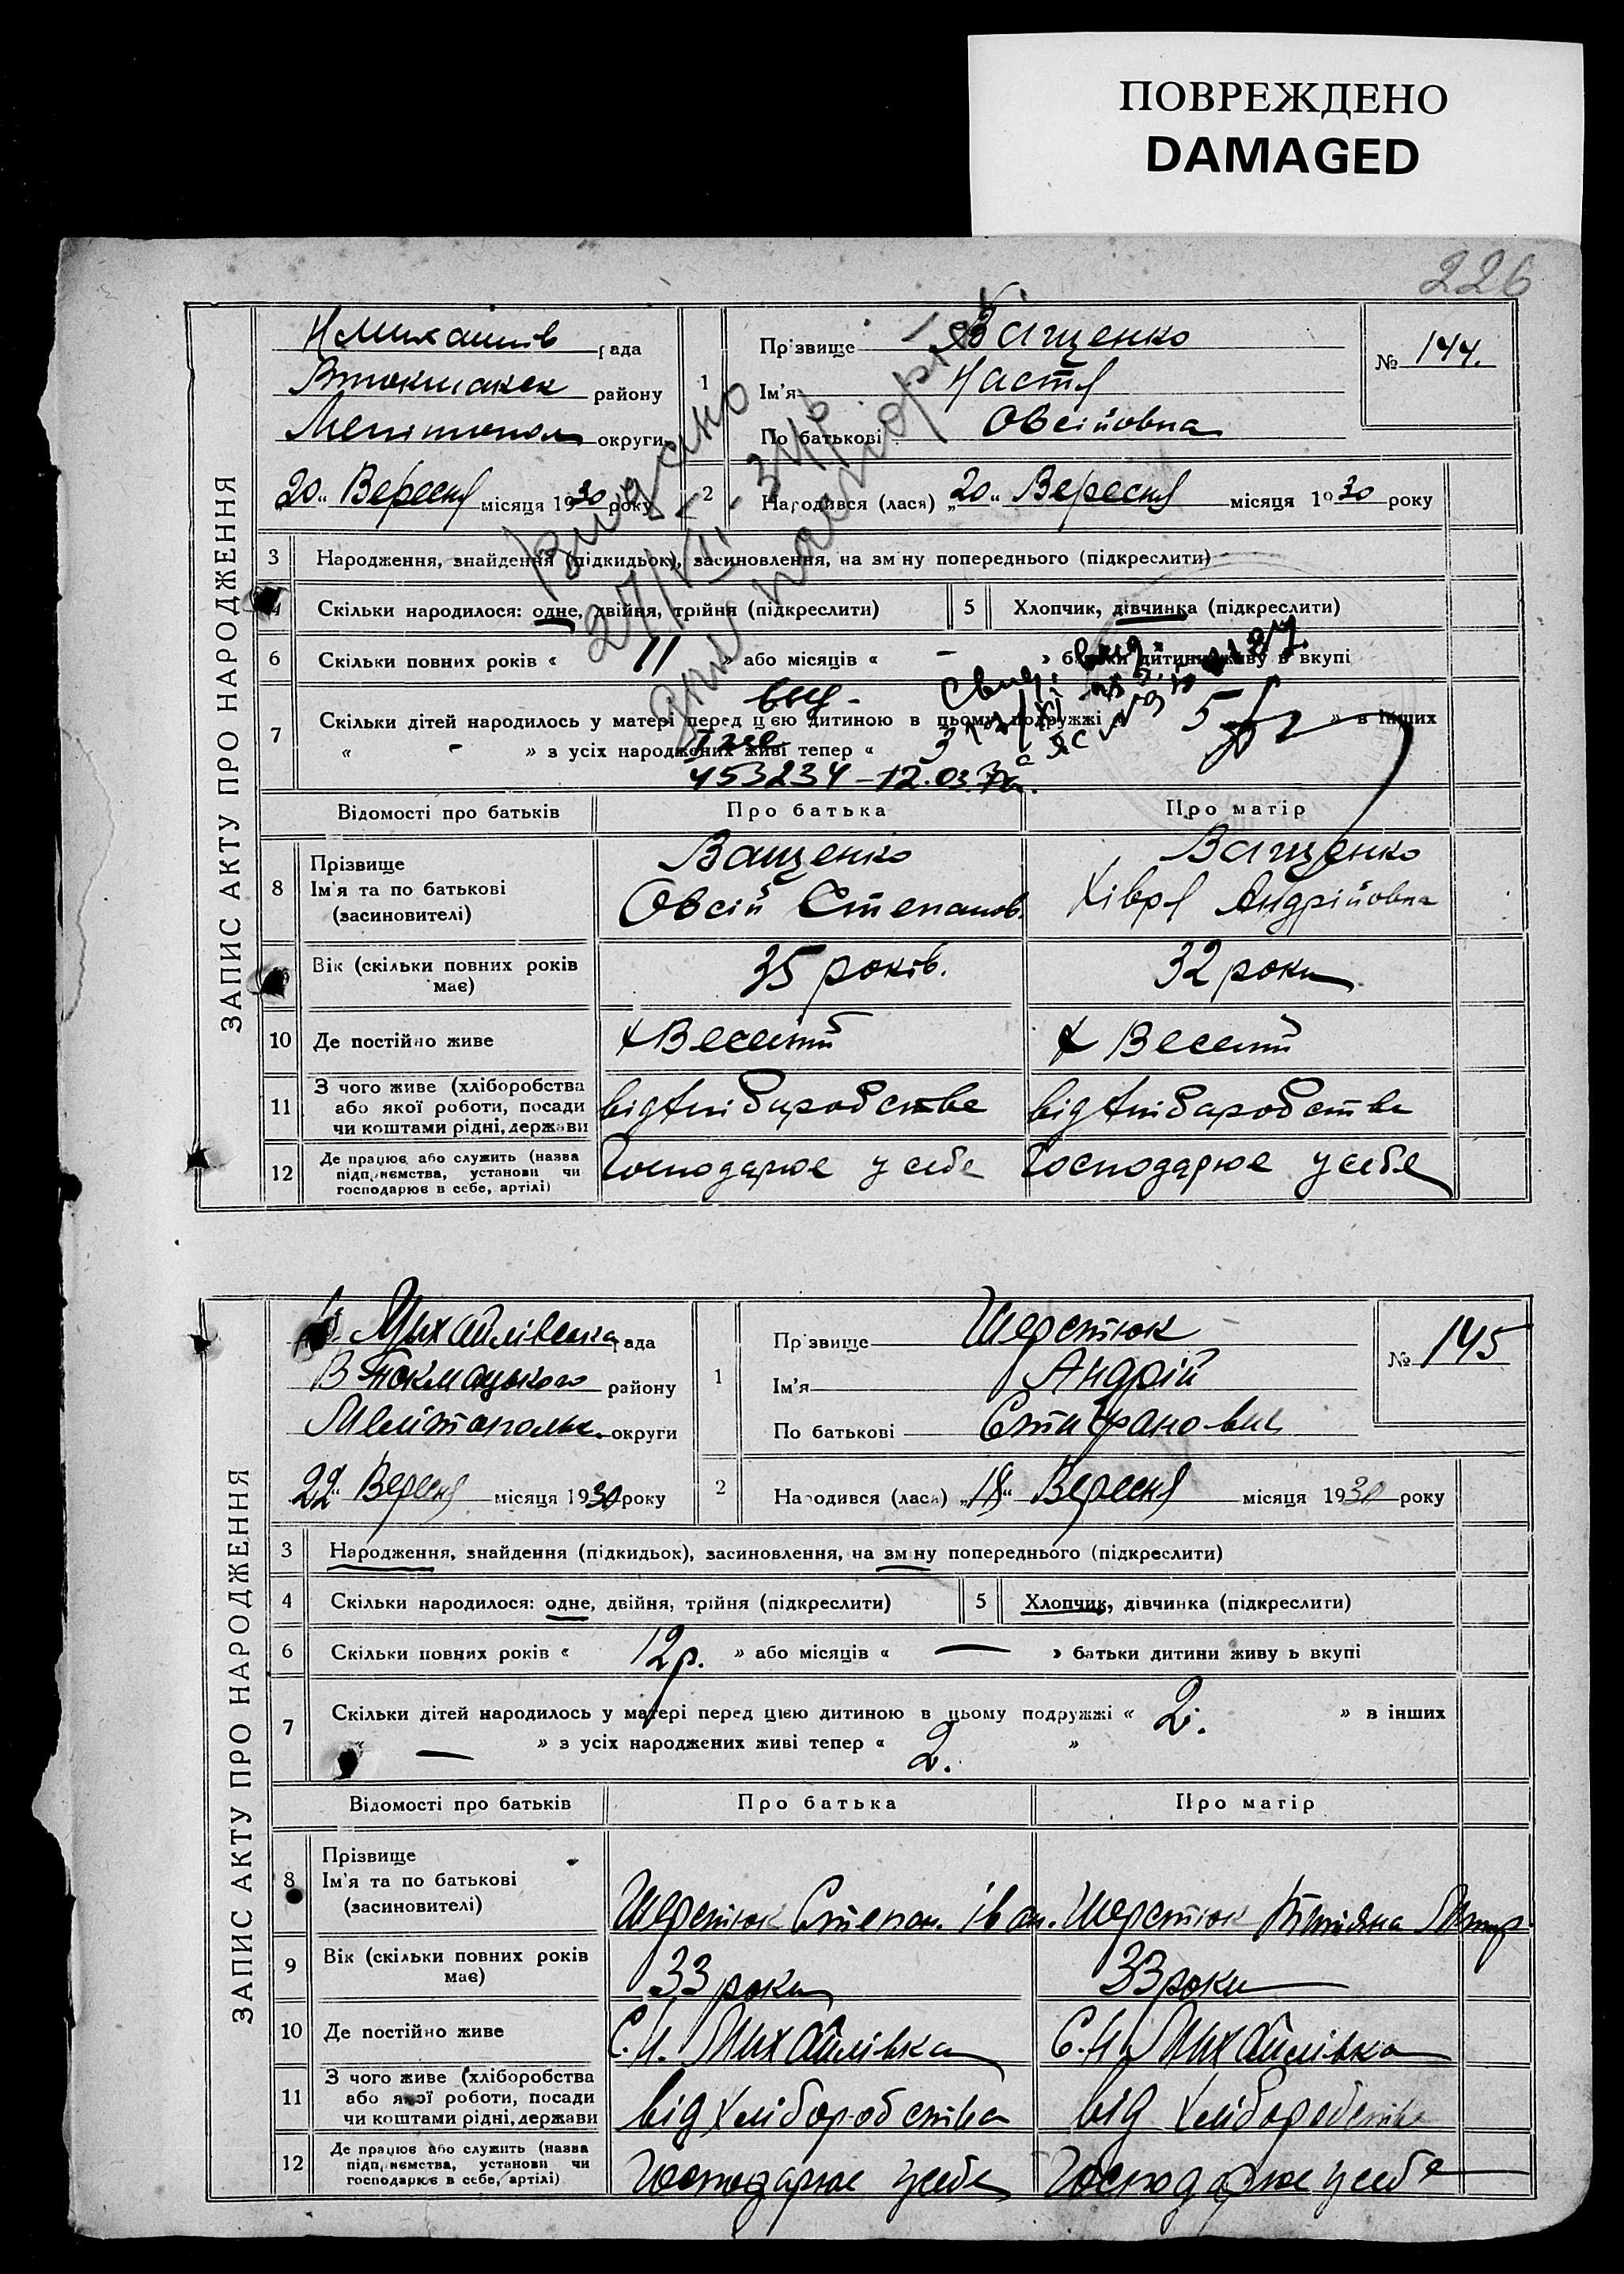 ПОВРЕЖДЕНО
DAMAGED
226
ЗАПИС АКТУ ПРО НАРОДЖЕННЯ
рада
району
округи
„20“ Вересня місяця 1930 року
1
Прізвище Ващенко
Ім'я Настя
По батькові Овсійовна
№ 144.
2 Народився (лася) „20“ Вересня місяця 1930 року
3 Народження, знайдення (підкидьок), засиновлення, на зміну попереднього (підкреслити)
4 Скільки народилося: одне, двійня, трійня (підкреслити) 5 Хлопчик, дівчинка (підкреслити)
Видано
6 Скільки повних років « 11 » або місяців « - » батьки дитини живуть вкупі
7 Скільки дітей народилось у матері перед цією дитиною в цьому подружжі « 5 » в інших
« - » з усіх народжених живі тепер « 3
453234 – 12.03.
Відомості про батьків Про батька Про матір
8 Прізвище
Ім'я та по батькові
(засиновителі)
Ващенко
Овсій Степанов.
Ващенко
Хівря Андрійовна
9 Вік (скільки повних років має) 35 років. 32 роки
10 Де постійно живе
11 З чого живе (хліборобства або якої роботи, посади чи коштами рідні, держави
12 Де працює або служить (назва підприємства, установи чи господарює в себе, артілі) Господарює у себе Господарює у себе
ЗАПИС АКТУ ПРО НАРОДЖЕННЯ
Н. Михайлівська рада
В Токмацького району
Мелітопольк. округи
„22“ Вересня місяця 1930 року
1
Прізвище Шерстюк
Ім'я Андрій
По батькові
№ 145
2 Народився (лася) „18“ Вересня місяця 1930 року
3 Народження, знайдення (підкидьок), засиновлення, на зміну попереднього (підкреслити)
4 Скільки народилося: одне, двійня, трійня (підкреслити) 5 Хлопчик, дівчинка (підкреслити)
6 Скільки повних років « 12 р. » або місяців « — » батьки дитини живуть вкупі
7 Скільки дітей народилось у матері перед цією дитиною в цьому подружжі « 2. » в інших
« — » з усіх народжених живі тепер « 2. »
Відомості про батьків Про батька Про матір
8 Прізвище
Ім'я та по батькові
(засиновителі)
Шерстюк Степан. Іван. Шерстюк
9 Вік (скільки повних років має) 33 роки 33 роки
10 Де постійно живе С. Н. Михайлівка С. Н. Михайлівка
11 З чого живе (хліборобства або якої роботи, посади чи коштами рідні, держави від хліборобства від хліборобства
12 Де працює або служить (назва підприємства, установи чи господарює в себе, артілі) Господарює у себе Господарює у себе